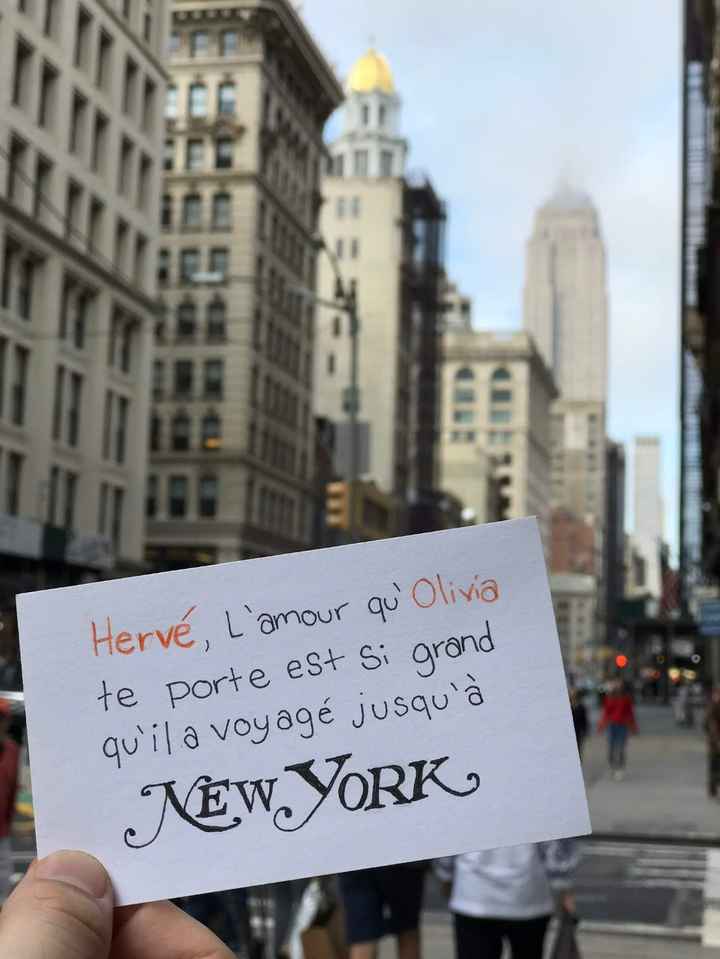 Hervé, L'amour qu'Olivia
te porte est si grand
qu'il a voyagé jusqu'à
NEW YORK